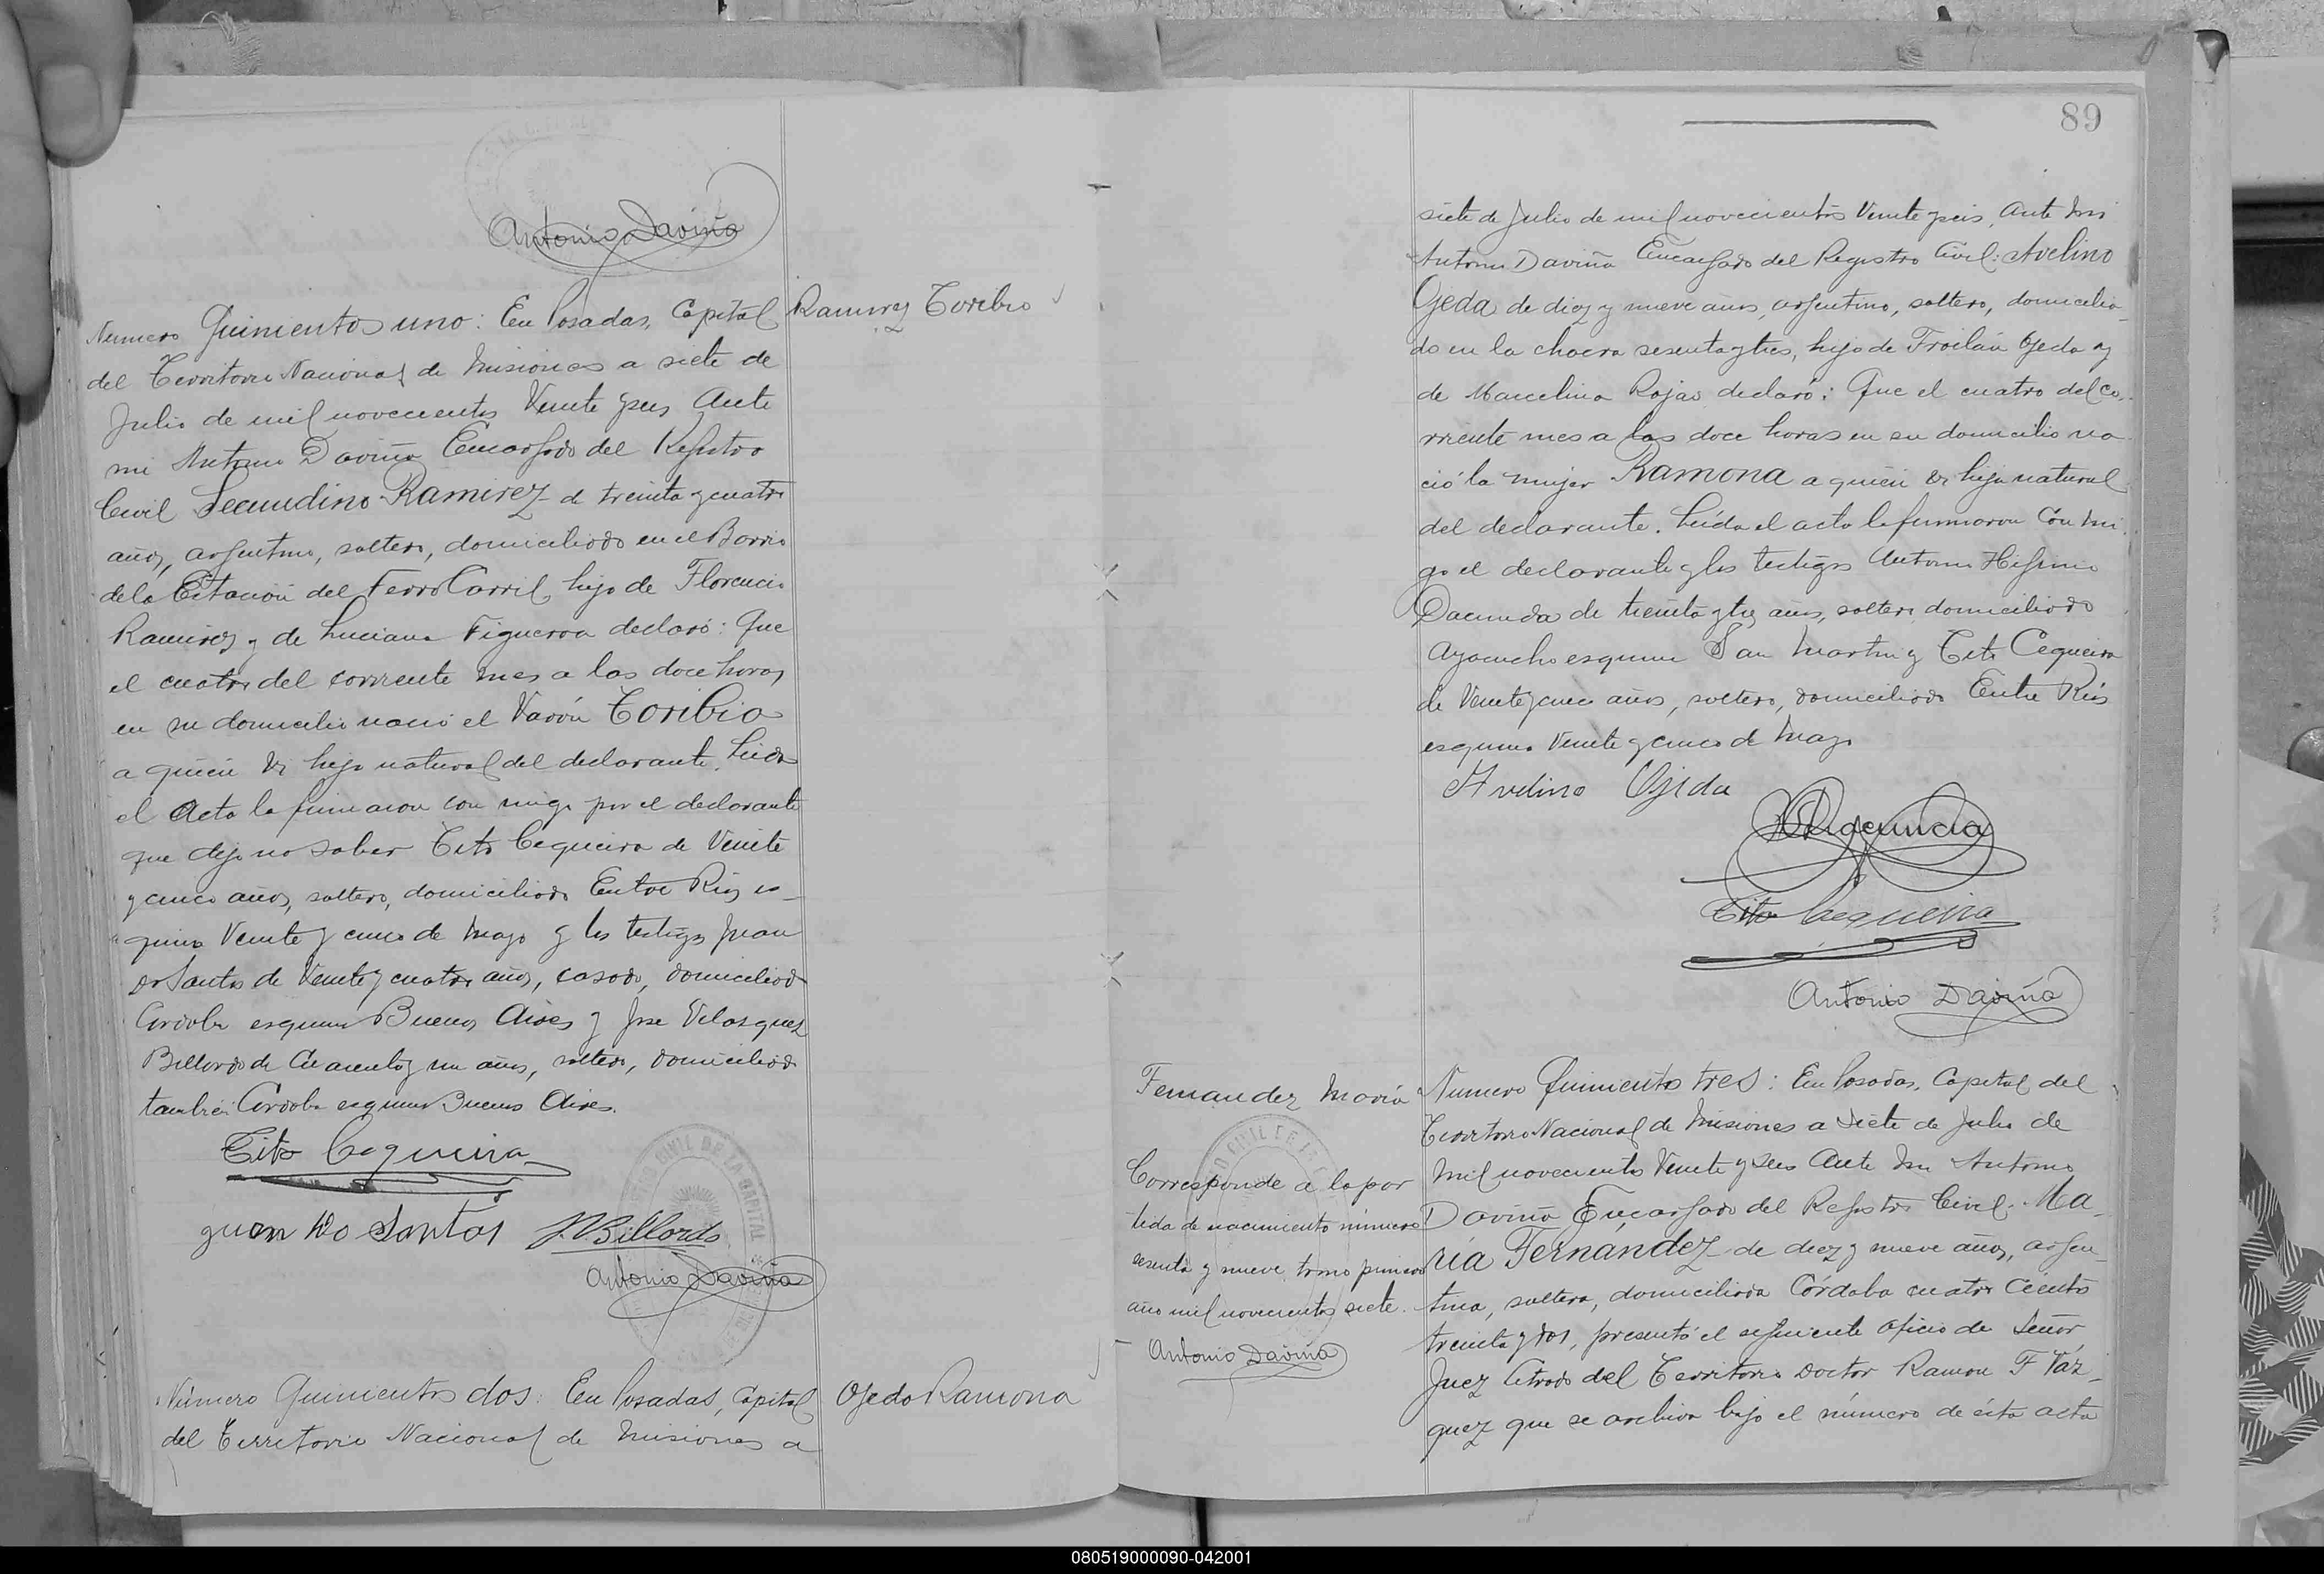 Antonio Daviña
Ramirez Toribio
Numero Quinientos uno: En Posadas, Capital
del Territorio Nacional de Misiones a siete de
Julio de mil novecientos Veinte y seis Ante
mi Antonio Daviña Encargado del Registro
Civil Secundino Ramirez de treinta y cuatro
años, argentino, soltero, domiciliado en el Barrio
de la Estación del FerroCarril, hijo de Florencio
Ramirez y de Luciana Figueroa declaró: Que
el cuatro del corriente mes a las doce horas
en su domicilio nació el Varón Toribio
a quien es hijo natural del declarante. Leida
el Acta la firmaron con migo por el declarante
que dijo no saber Tito Cequeira de Veinte
y cinco años, soltero, domiciliado Entre Rios es-
quina Veinte y cinco de Mayo y los testigos Juan
do Santos de Veinte y cuatro años, casado, domiciliado
Córdoba esquina Buenos Aires y Jose Velasquez
Billordo de Cuarenta y un años, soltero, domiciliado
tambien Córdoba esquina Buenos Aires.
Tito Cequeira
guan do Santos J.V.Billordo
Antonio Daviña
Número Quinientos dos: En Posadas, Capital
del Territorio Nacional de Misiones a
Ojeda Ramona
89
siete de Julio de mil novecientos Veinte y seis, Ante mi
Antonio Daviña Encargado del Registro Civil: Avelino
Ojeda de diez y nueve años, argentino, soltero, domicilia-
do en la chacra sesenta y tres, hijo de Froilán Ojeda y
de Marcelina Rojas declaró: Que el cuatro del co-
rriente mes a las doce horas en su domicilio na
ció la mujer Ramona a quien es hija natural
del declarante. Leída el acta la firmaron Con mi
go el declarante y los testigos Antonio Higinio
Dacunda de treinta y tres años, soltero domiciliado
Ayacucho esquina San Martin y Tito Cequeira
de Veinte y cinco años, soltero, domiciliado Entre Rios
esquina Veinte y cinco de Mayo
Avelino Ojeda
Tito Cequeira
Antonio Daviña
Fernandez María
Corresponde a la par
tida de nacimiento número
sesenta y nueve, tomo primero
año mil novecientos siete.
Antonio Daviña
Numero Quinientos tres: En Posadas, Capital del
Territorio Nacional de Misiones a Siete de Julio de
Mil novecientos Veinte y seis Ante mi Antonio
Daviña Encargado del Registro Civil. Ma-
ría Fernández de diez y nueve años, argen-
tina, soltera, domiciliada Córdoba cuatro Cientos
treinta y dos, presentó el siguiente oficio de Señor
Juez Letrado del Territorio Doctor Ramon F Váz-
quez que se archiva bajo el número de ésta acta
080519000090-042001